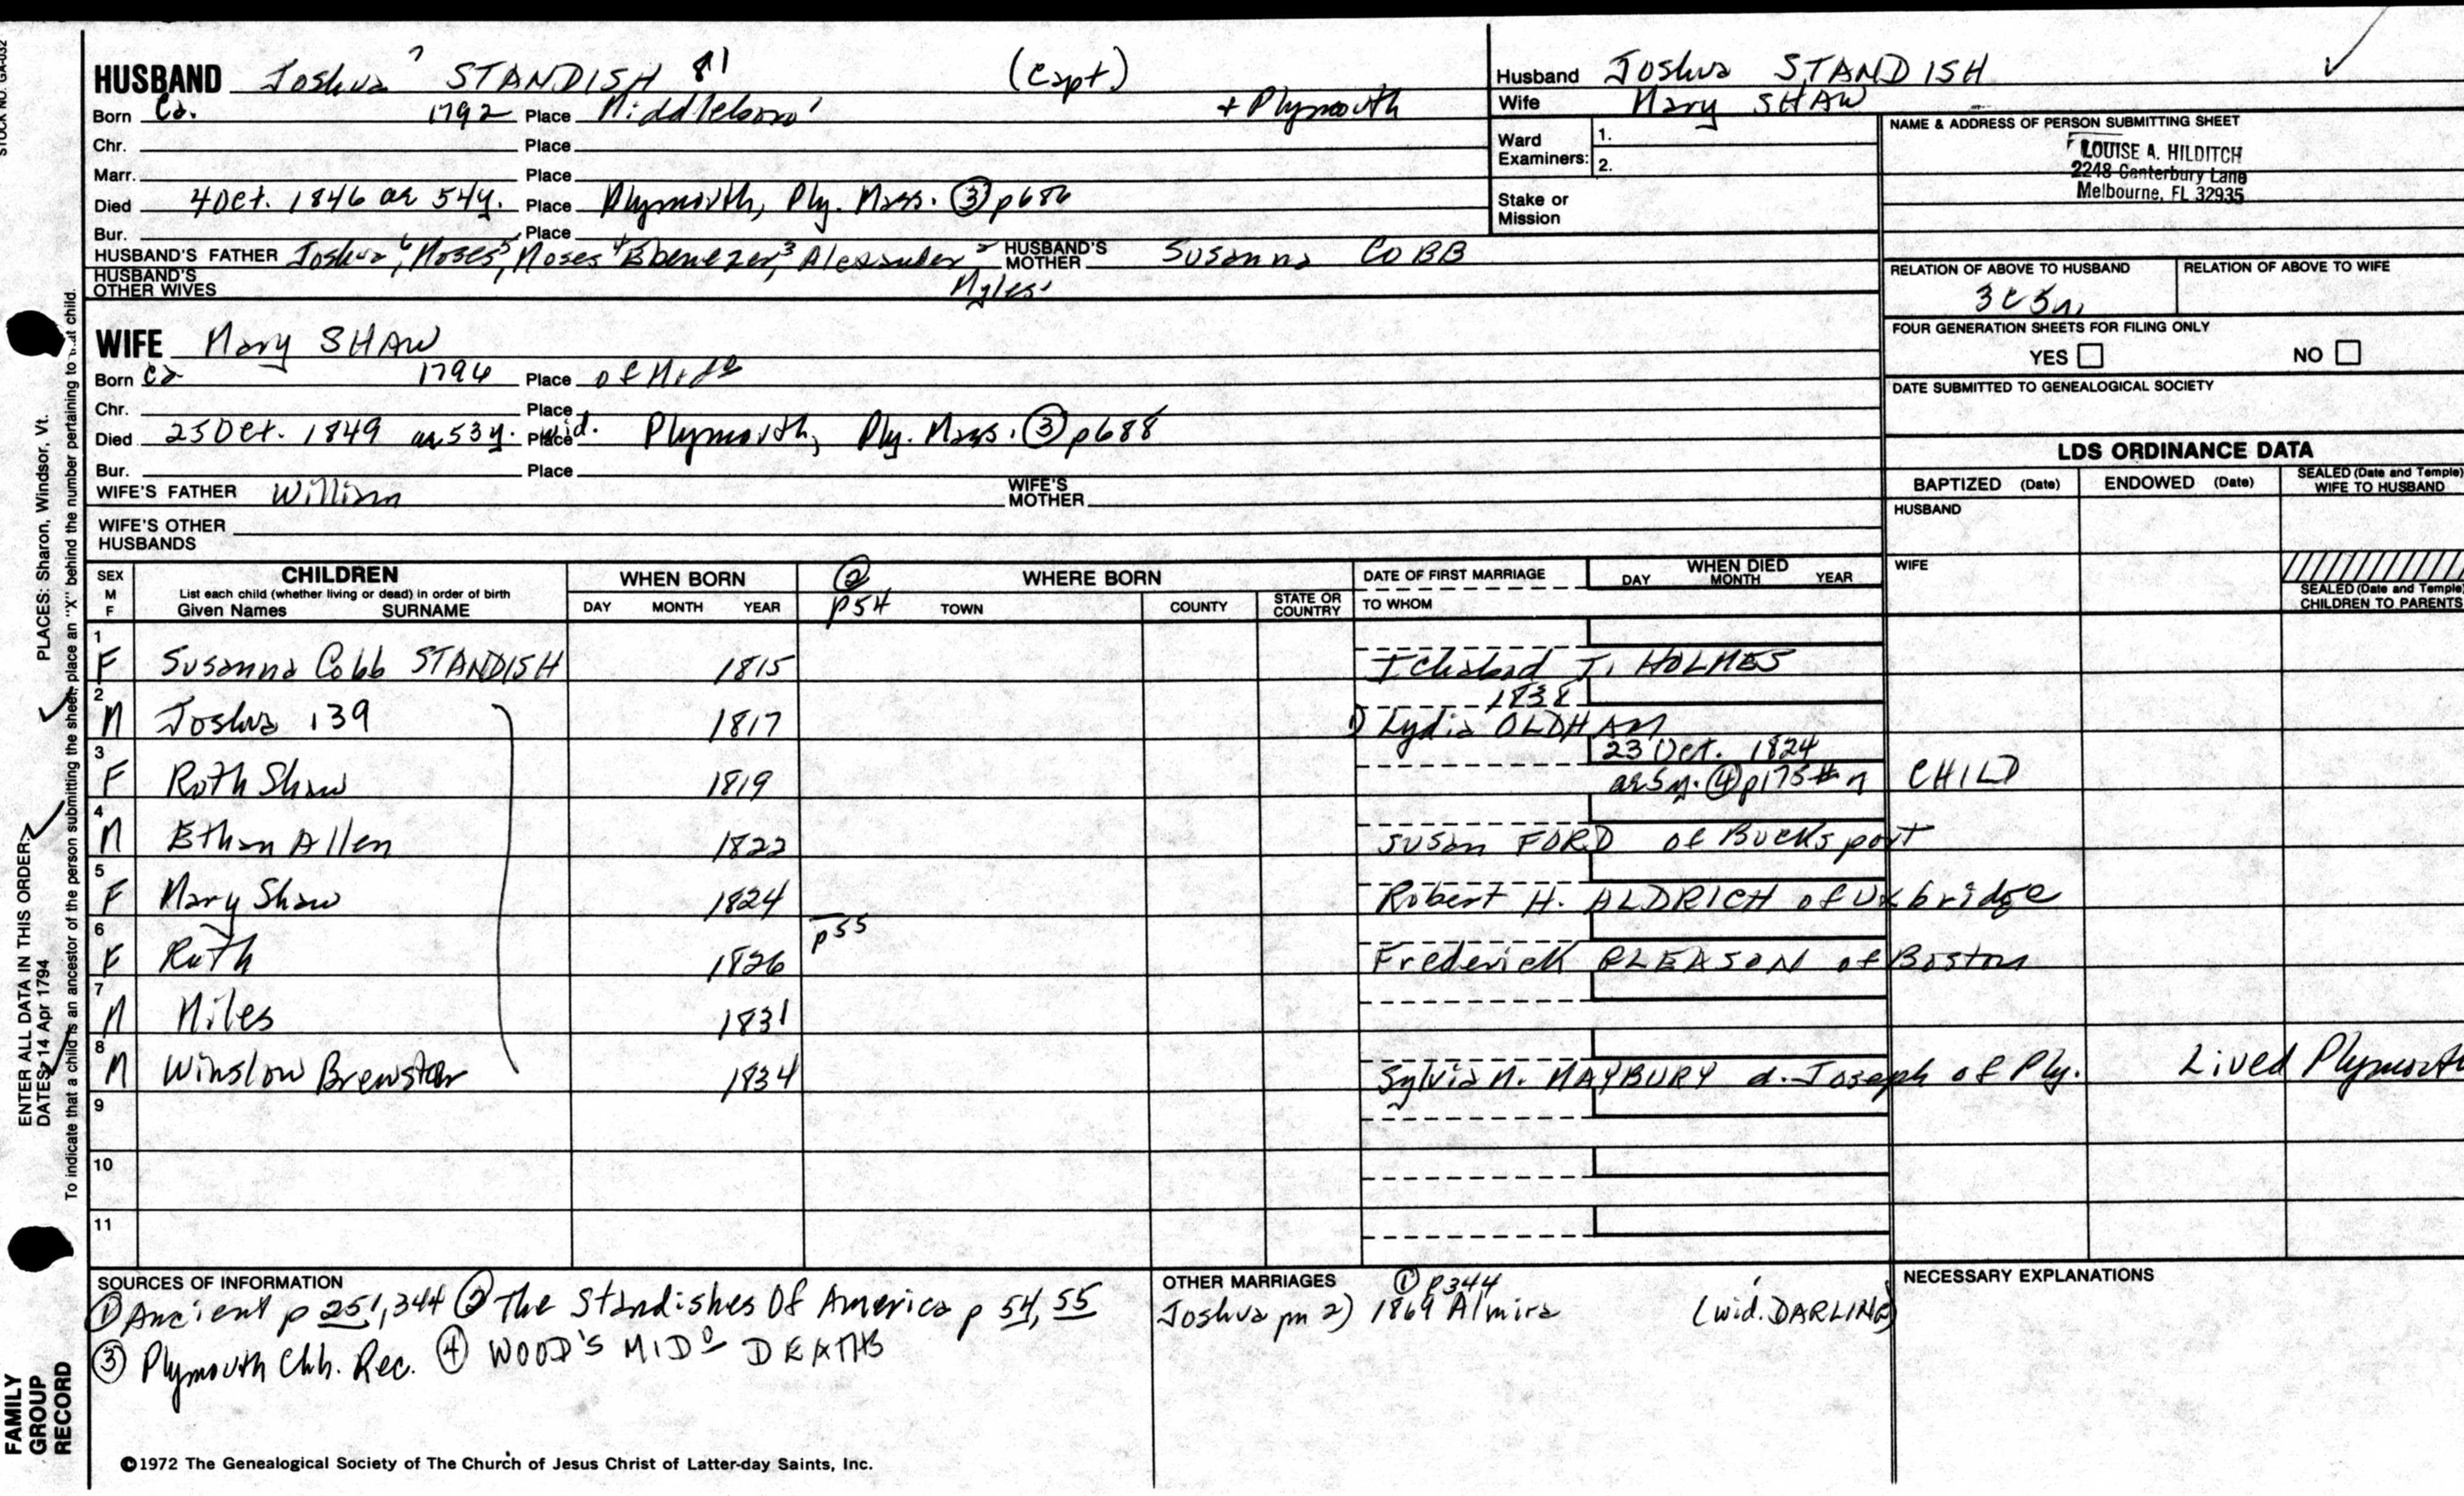 STOCK NO. GA-032
HUSBAND Joshua 7 STANDISH 81 (Capt)
Born Ca. 1792 Place Middleboro' + Plymouth
Chr. Place
Marr. Place
Died 4 Oct. 1846 ae 54y. Place Plymouth, Ply. Mass. ③ p686
Bur. Place
HUSBAND'S FATHER Joshua 6, Moses 5, Moses 4 Ebenezer, 3 Alexander 2 HUSBAND'S MOTHER Susanna COBB
HUSBAND'S OTHER WIVES Myles 1
Husband Joshua STANDISH
Wife Mary SHAW
Ward Examiners: 1.
2.
Stake or Mission
NAME & ADDRESS OF PERSON SUBMITTING SHEET
LOUISE A. HILDITCH
2248 Canterbury Lane
Melbourne, FL 32935
RELATION OF ABOVE TO HUSBAND RELATION OF ABOVE TO WIFE
FOUR GENERATION SHEETS FOR FILING ONLY
YES NO
DATE SUBMITTED TO GENEALOGICAL SOCIETY
WIFE Mary SHAW
Born Ca 1796 Place of Midd
Chr. Place
Died 25 Oct. 1849 ae 53y. wid. Place Plymouth, Ply. Mass. ③ p688
Bur. Place
WIFE'S FATHER William WIFE'S MOTHER
WIFE'S OTHER HUSBANDS
LDS ORDINANCE DATA
BAPTIZED (Date) ENDOWED (Date) SEALED (Date and Temple) WIFE TO HUSBAND
HUSBAND
WIFE
SEALED (Date and Temple) CHILDREN TO PARENTS
SEX M F
CHILDREN
List each child (whether living or dead) in order of birth
Given Names SURNAME
WHEN BORN
DAY MONTH YEAR
② p54
WHERE BORN
TOWN COUNTY STATE OR COUNTRY
DATE OF FIRST MARRIAGE
TO WHOM
WHEN DIED
DAY MONTH YEAR
1 F Susanna Cobb STANDISH 1815 Ichabod T. HOLMES
2 M Joshua 139 1817 1838 1) Lydia OLDHAM
3 F Roth Shaw 1819 23 Oct. 1824 ae 5y. ④ p175 #7 CHILD
4 M Ethan Allen 1822 Susan FORD of Bucksport
5 F Mary Shaw 1824 Robert H. ALDRICH of Uxbridge
6 F Ruth 1826 p55 Frederick GLEASON of Boston
7 M Miles 1831
8 M Winslow Brewster 1834 Sylvia M. MAYBURY d. Joseph of Ply. Lived Plymouth
9
10
11
SOURCES OF INFORMATION
① Ancient p 251, 344 ② The Standishes Of America p 54, 55
③ Plymouth Chh. Rec. ④ WOOD'S MIDD DEATHS
OTHER MARRIAGES ① p344
Joshua m 2) 1869 Almira (wid. DARLING)
NECESSARY EXPLANATIONS
©1972 The Genealogical Society of The Church of Jesus Christ of Latter-day Saints, Inc.
FAMILY GROUP RECORD
ENTER ALL DATA IN THIS ORDER:
DATES: 14 Apr 1794 PLACES: Sharon, Windsor, Vt.
To indicate that a child is an ancestor of the person submitting the sheet, place an "X" behind the number pertaining to that child.